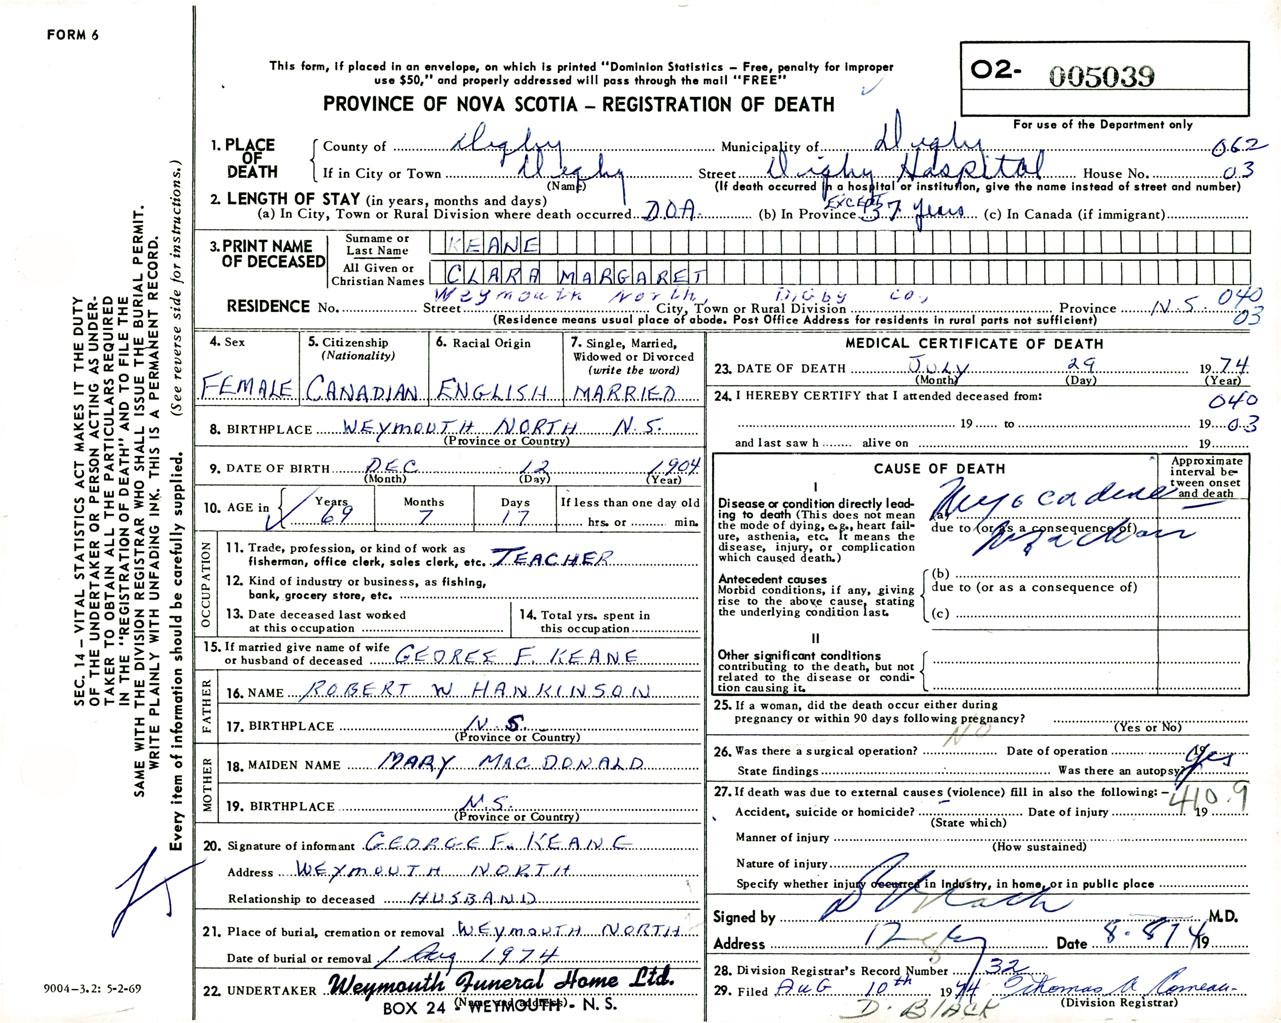 FORM 6
This form, if placed in an envelope, on which is printed "Dominion Statistics – Free, penalty for improper
use $50," and properly addressed will pass through the mail "FREE"
PROVINCE OF NOVA SCOTIA – REGISTRATION OF DEATH
O2- 005039
For use of the Department only
1. PLACE OF DEATH
County of Digby Municipality of Digby 062
If in City or Town Digby Street Digby Hospital House No. 03
(Name) (If death occurred in a hospital or institution, give the name instead of street and number)
2. LENGTH OF STAY (in years, months and days)
(a) In City, Town or Rural Division where death occurred D.O.A. (b) In Province EXCEPT 37 years (c) In Canada (if immigrant)
3. PRINT NAME OF DECEASED
Surname or Last Name KEANE
All Given or Christian Names CLARA MARGARET
Weymouth North, Digby Co,
RESIDENCE No. Street City, Town or Rural Division Province N.S. 040 03
(Residence means usual place of abode. Post Office Address for residents in rural parts not sufficient)
4. Sex
FEMALE
5. Citizenship (Nationality)
CANADIAN
6. Racial Origin
ENGLISH
7. Single, Married, Widowed or Divorced (write the word)
MARRIED
8. BIRTHPLACE WEYMOUTH NORTH N.S.
(Province or Country)
9. DATE OF BIRTH DEC 12 1904
(Month) (Day) (Year)
10. AGE in Years 69 Months 7 Days 17 If less than one day old
hrs. or min.
OCCUPATION
11. Trade, profession, or kind of work as
fisherman, office clerk, sales clerk, etc. TEACHER
12. Kind of industry or business, as fishing,
bank, grocery store, etc.
13. Date deceased last worked
at this occupation
14. Total yrs. spent in
this occupation
15. If married give name of wife
or husband of deceased GEORGE F. KEANE
FATHER
16. NAME ROBERT W HANKINSON
17. BIRTHPLACE N.S.
(Province or Country)
MOTHER
18. MAIDEN NAME MARY MAC DONALD
19. BIRTHPLACE N.S.
(Province or Country)
20. Signature of informant GEORGE F. KEANE
Address WEYMOUTH NORTH
Relationship to deceased HUSBAND
21. Place of burial, cremation or removal WEYMOUTH NORTH
Date of burial or removal 1 Aug 1974
22. UNDERTAKER Weymouth Funeral Home Ltd.
BOX 24 - WEYMOUTH - N. S.
MEDICAL CERTIFICATE OF DEATH
23. DATE OF DEATH JULY 29 1974
(Month) (Day) (Year)
24. I HEREBY CERTIFY that I attended deceased from: 040
19 to 19 03
and last saw h alive on 19
CAUSE OF DEATH
Approximate interval between onset and death
I
Disease or condition directly lead-
ing to death (This does not mean
the mode of dying, e.g., heart fail-
ure, asthenia, etc. It means the
disease, injury, or complication
which caused death.)
(a)
due to (or as a consequence of)
Antecedent causes
Morbid conditions, if any, giving
rise to the above cause, stating
the underlying condition last.
(b)
due to (or as a consequence of)
(c)
II
Other significant conditions
contributing to the death, but not
related to the disease or condi-
tion causing it.
25. If a woman, did the death occur either during
pregnancy or within 90 days following pregnancy? NO
(Yes or No)
26. Was there a surgical operation? Date of operation 19
State findings Was there an autopsy? yes
27. If death was due to external causes (violence) fill in also the following: – 410.9
Accident, suicide or homicide? Date of injury 19
(State which)
Manner of injury
(How sustained)
Nature of injury
Specify whether injury occurred in Industry, in home, or in public place
Signed by M.D.
Address Digby Date 8-8-74 19
28. Division Registrar's Record Number 32
29. Filed AUG 10th 1974 Thomas A. Comeau
(Division Registrar)
D. BLACK
SEC. 14 – VITAL STATISTICS ACT MAKES IT THE DUTY
OF THE UNDERTAKER OR PERSON ACTING AS UNDER-
TAKER TO OBTAIN ALL THE PARTICULARS REQUIRED
IN THE "REGISTRATION OF DEATH" AND TO FILE THE
SAME WITH THE DIVISION REGISTRAR WHO SHALL ISSUE THE BURIAL PERMIT.
WRITE PLAINLY WITH UNFADING INK. THIS IS A PERMANENT RECORD.
Every item of information should be carefully supplied. (See reverse side for instructions.)
9004–3.2: 5-2-69